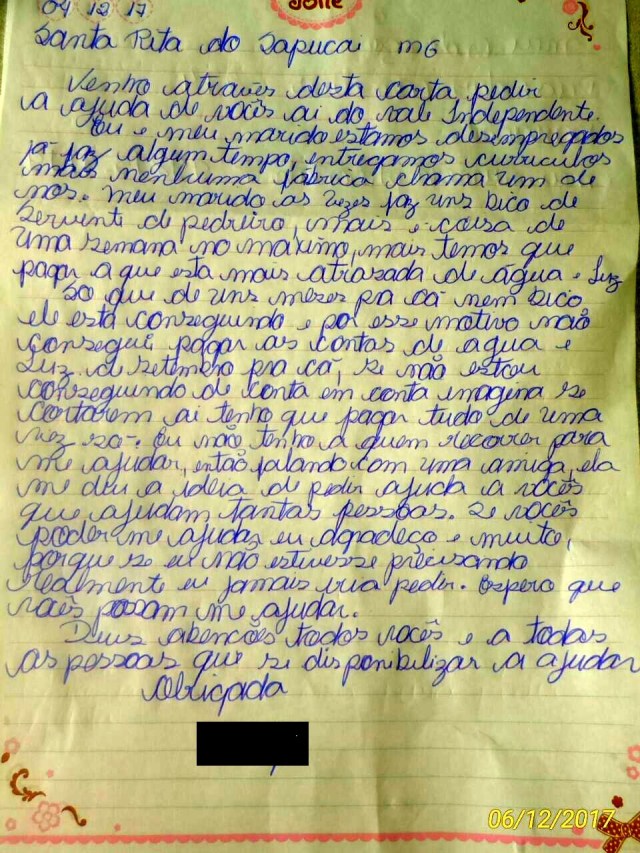 04 12 17
Jolie
Santa Rita do Sapucai MG
Venho atraves desta carta pedir
a ajuda de vocês ai do vale Independente.
Eu e meu marido estamos desempregados
ja faz algum tempo, entregamos curriculos
mais nenhuma fábrica chama um de
nos. Meu marido as vezes faz uns bico de
servente de pedreiro, mais e coisa de
uma semana no maximo, mais temos que
pagar a que esta mais atrazada de água e Luz
So que de uns meses pra cá nem bico
ele esta conseguindo e por esse motivo não
consegui pagar as contas de agua e
Luz de setembro pra cá, se não estou
conseguindo de conta em conta imagina se
cortarem ai tenho que pagar tudo de uma
vez so. Eu não tenho a quem recorrer para
me ajudar, então falando com uma amiga, ela
me deu a ideia de pedir ajuda a vocês
que ajudam tantas pessoas. Se vocês
poder me ajudar eu agradeço e muito,
porque se eu não estivesse precisando
realmente eu jamais iria pedir. Espero que
vocês possam me ajudar.
Deus abencões todos vocês e a todas
as pessoas que se disponibilizar a ajudar
Obrigada
06/12/2017